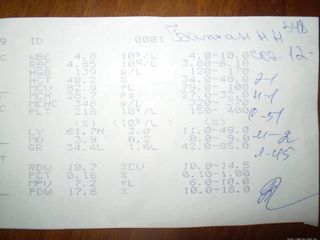 ID 0001 Баптан Н Н 348
WBC 4.8 10⁹/L 4.0-10.0
RBC 4.05 10¹²/L 3.80-6.10
HGB 139 g/L 120- 170
HCT 40.2 % 34.0-48.0
MCV 82.9 fL 79.0-100
MCH 28.7
MCHC 346 g/L 320- 370
PLT 216 10⁹/L 150- 400
(%) (10⁹/L) (%)
LY 61.7H 3.0 11.0-49.0
MO 3.9 0.2 0.0- 9.0
GR 34.4L 1.6L 42.0-85.0
RDW 10.7 %CV 10.0-14.5
PCT 0.16 % 0.10-1.00
MPV 7.2 fL 6.0-10.0
PDW 17.6 % 10.0-18.0
СОЭ-12-
Э-1
П-1
С-51
М-2
Л-45